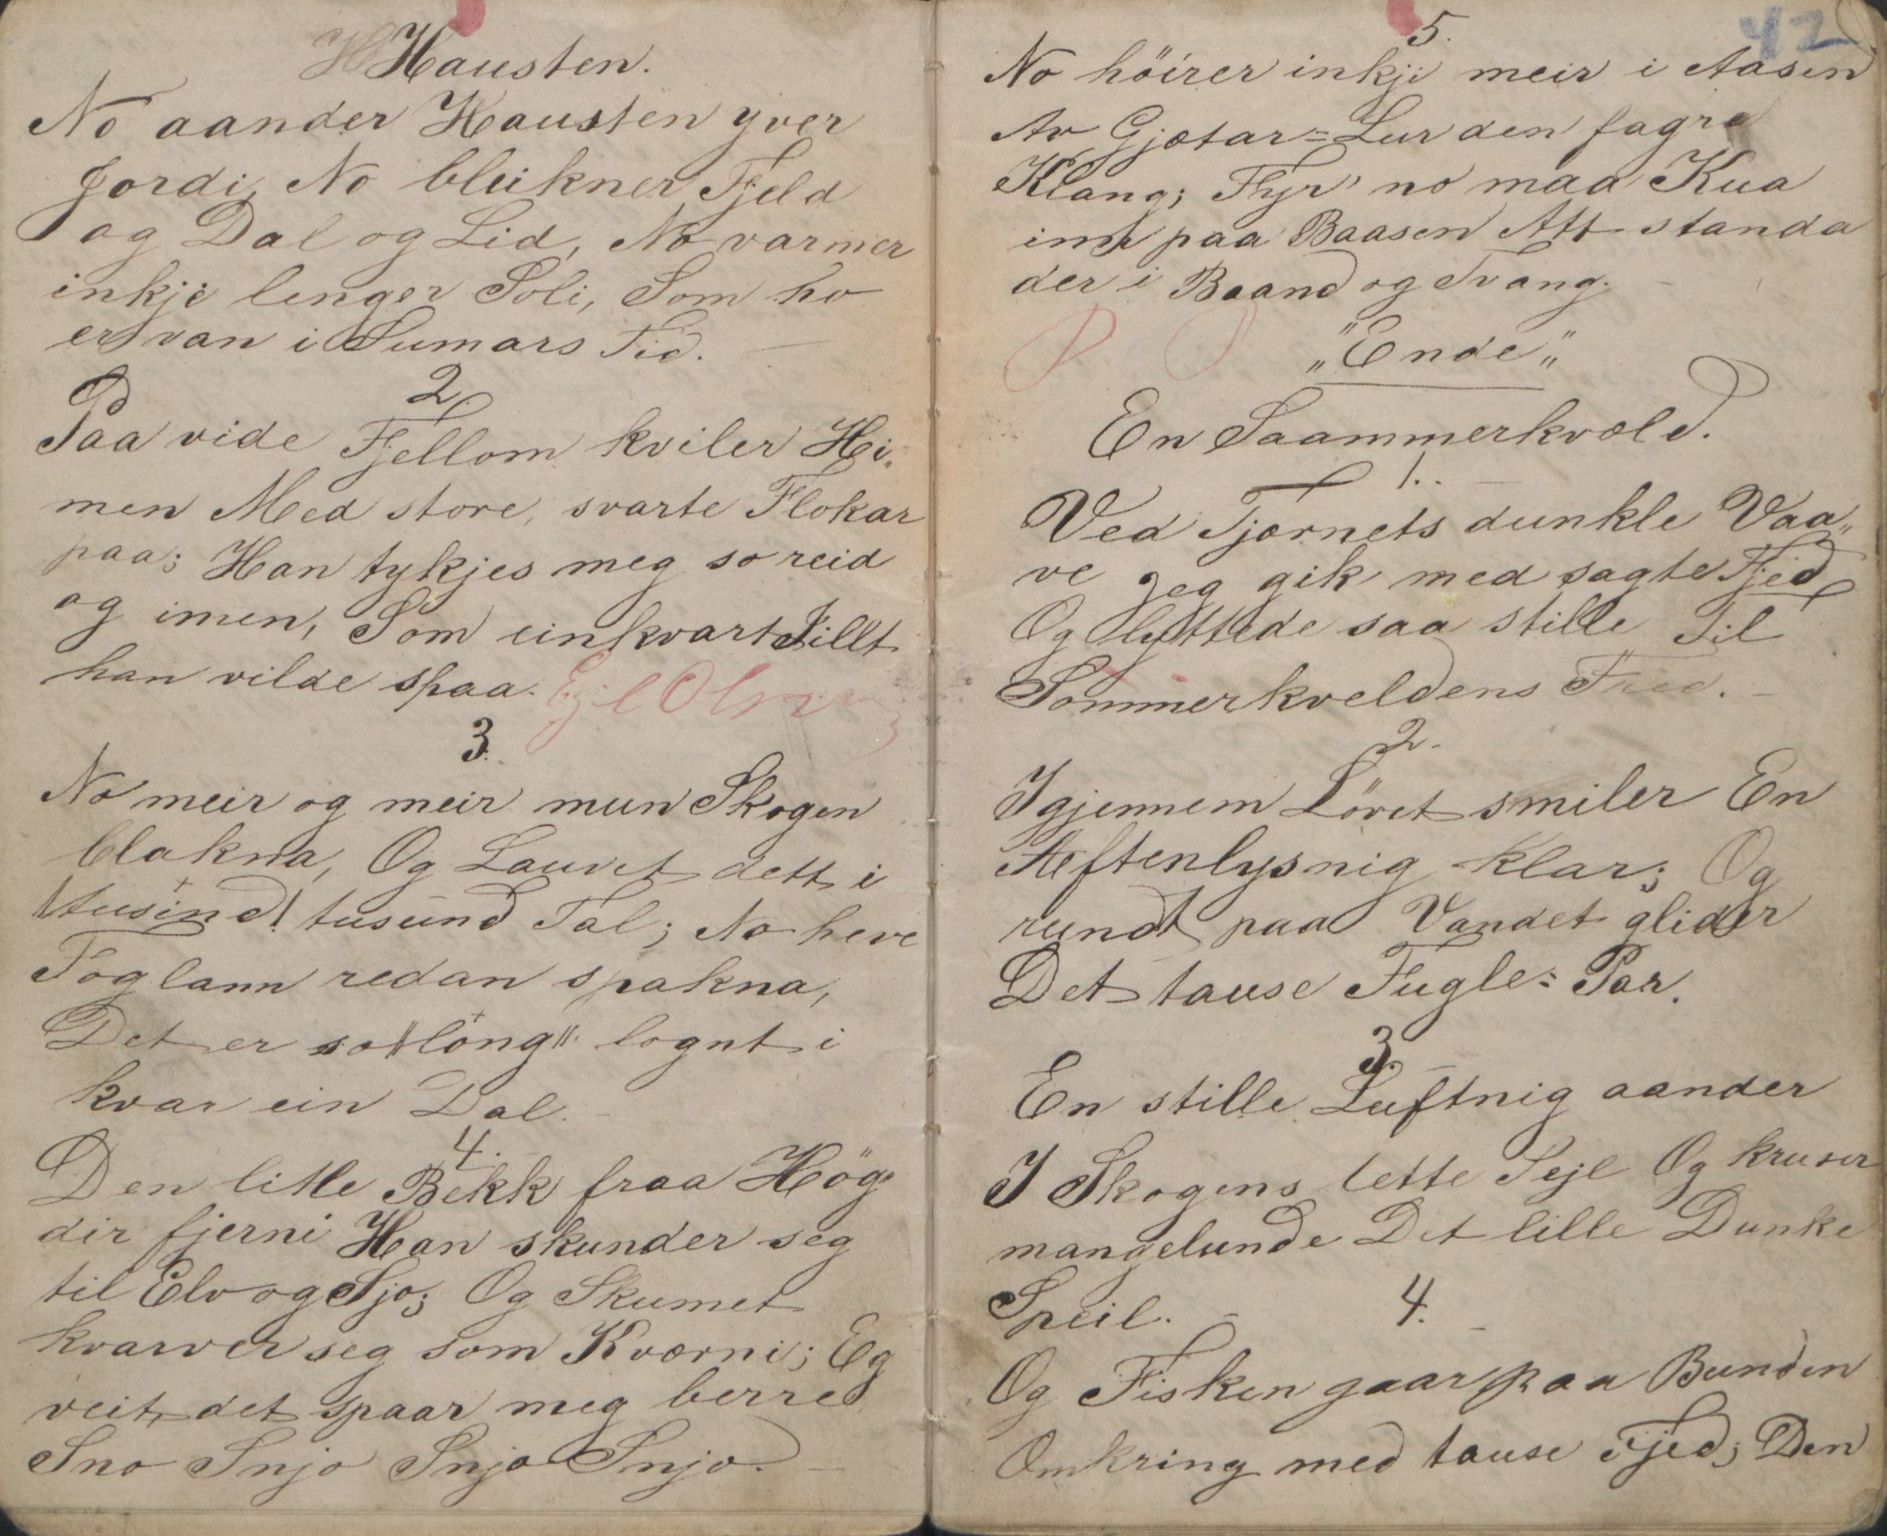 Hausten.
No aander Hausten yver
Jordi, No bleikner Fjeld
og Dal og Lid, No varmer
inkje lenger Soli, Som ho
er van i Sumars Tid.
2.
Paa vide Fjellom kviler Hi„
men Med store, svarte Flokar
paa; Han tykjes meg so reid
og imen, Som einkvart Jillt
han vilde spaa.
3.
No meir og meir mun Skogen
blakna, Og Lauvet dett i
tusind tusund Tal; No heve
Foglann redan spakna,
Det er so long lognt i
kvar ein Dal.
4.
Den litle Bekk fraa Hög„
dir fjerni Han skunder seg
til Elv og Sjo; Og Skumet
kvarver seg som Kværni; Eg
veit, det spaar meg berre
Sno Snjo Snjo Snjo.
42
5.
No höirer inkje meir i Aasen
Av Gjøtar=Lur den fagre
Klang; Fyr' no maa Kua
inn paa Baasen Att standa
der i Baand og Tvang.
„Ende„
En Saammerkvæld.
1.
Ved Tjørnets dunkle Vaa„
ve Jeg gik med sagte Fjed
Og lyttede saa stille Til
Sommerkveldens Fred.
2.
Igjennem Løvet smiler En
Aeftenlysnig klar; Og
rundt paa Vandet glider
Det tause Fugle=Par.
3.
En stille Luftnig aander
I Skogens lette Sejl Og kruser
mangelunde Det lille Dunke
Speil.
4.
Og Fisken gaar paa Bunden
Omkring med tause Fjed; Den